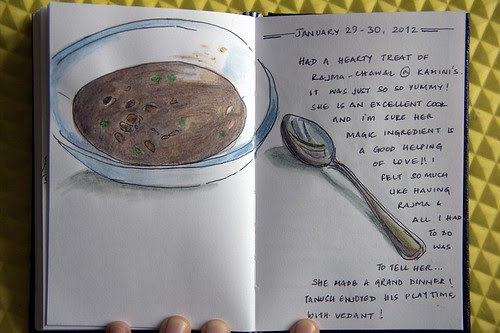 JANUARY 29-30, 2012
HAD A HEARTY TREAT OF
RAJMA-CHAWAL @ KAMINI'S.
IT WAS JUST SO SO YUMMY!
SHE IS AN EXCELLENT COOK
AND I'M SURE HER
MAGIC INGREDIENT IS
A GOOD HELPING
OF LOVE!!!
FELT SO MUCH
LIKE HAVING
RAJMA &
ALL I HAD
TO DO
WAS
TO TELL HER...
SHE MADE A GRAND DINNER!
TANUSH ENJOYED HIS PLAYTIME
WITH VEDANT!